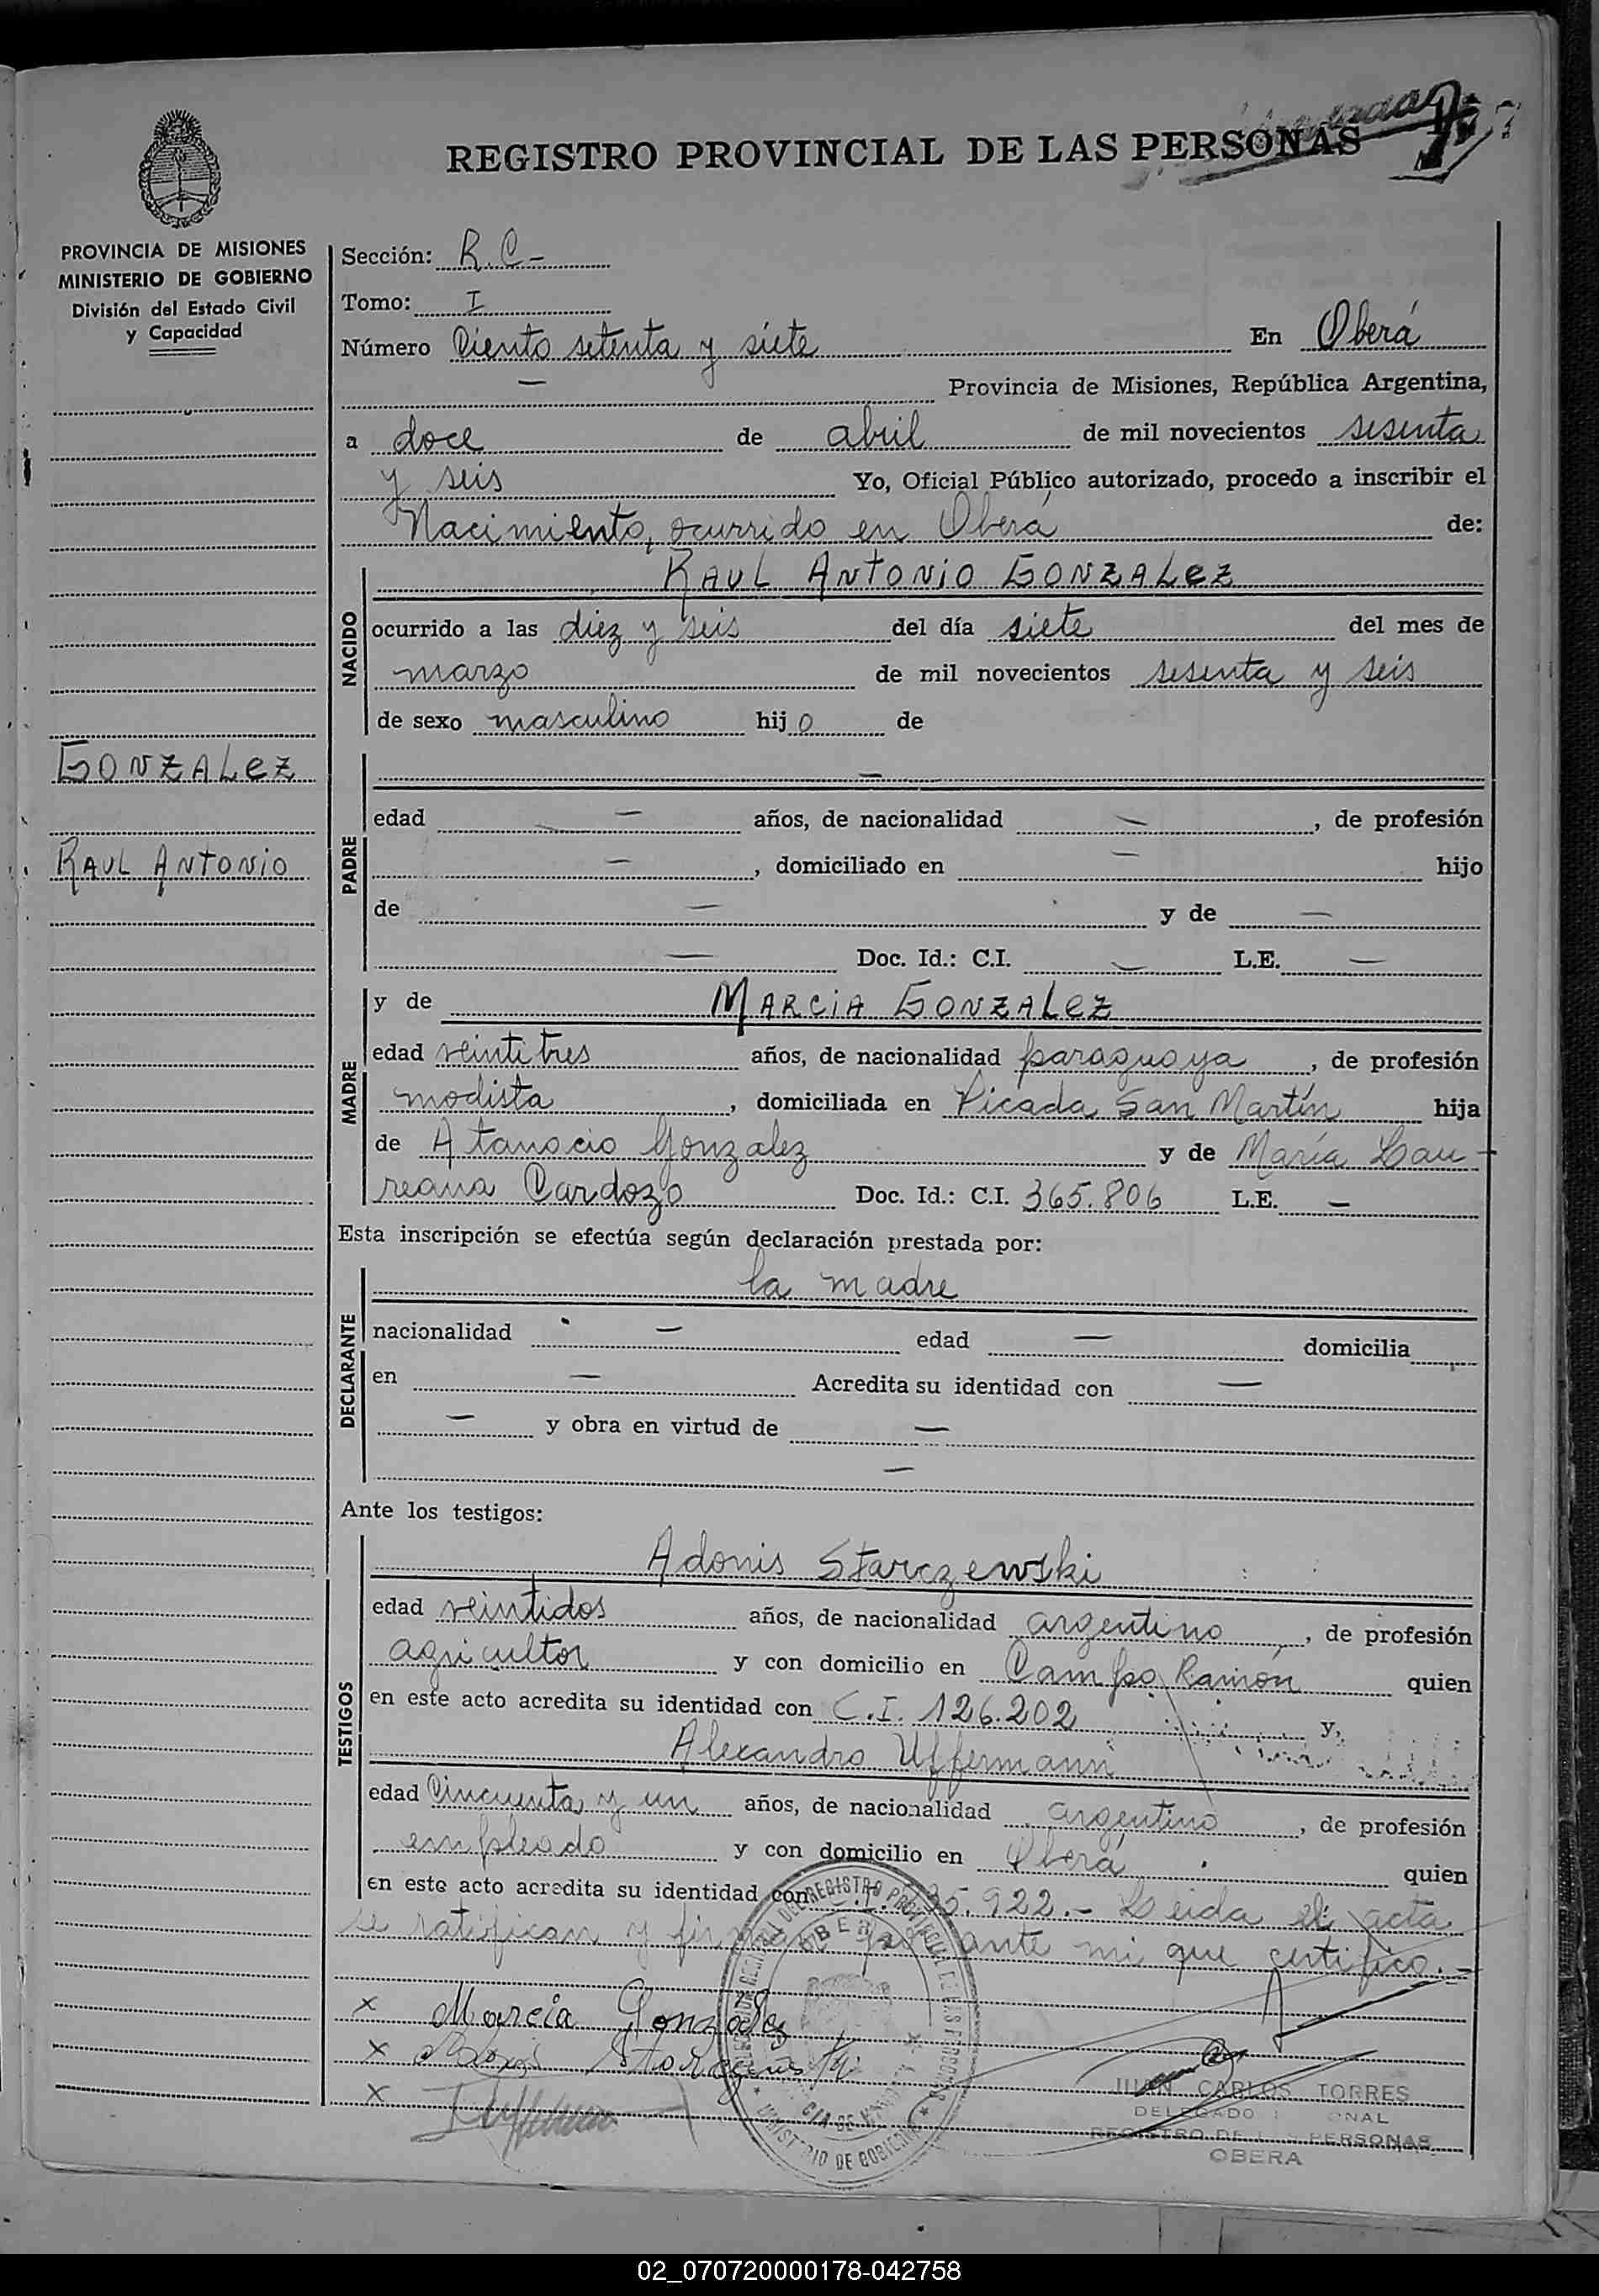 REGISTRO PROVINCIAL DE LAS PERSONAS
PROVINCIA DE MISIONES
MINISTERIO DE GOBIERNO
División del Estado Civil
y Capacidad
GONZALEZ
RAUL ANTONIO
Sección: R.C-
Tomo: I
Número Ciento setenta y siete En Oberá
— Provincia de Misiones, República Argentina,
a doce de abril de mil novecientos sesenta
y seis Yo, Oficial Público autorizado, procedo a inscribir el
Nacimiento, ocurrido en Oberá de:
NACIDO
RAUL ANTONIO GONZALEZ
ocurrido a las diez y seis del día siete del mes de
marzo de mil novecientos sesenta y seis
de sexo masculino hijo de
PADRE
—
edad — años, de nacionalidad —, de profesión
—, domiciliado en — hijo
de — y de —
— Doc. Id.: C.I. — L.E. —
MADRE
y de MARCIA GONZALEZ
edad veintitres años, de nacionalidad paraguaya, de profesión
modista, domiciliada en Picada San Martín hija
de Atanacio Gonzalez y de María Lau-
reana Cardozo Doc. Id.: C.I. 365.806 L.E. —
Esta inscripción se efectúa según declaración prestada por:
DECLARANTE
la madre
nacionalidad — edad — domicilia
en — Acredita su identidad con —
— y obra en virtud de —
—
Ante los testigos:
TESTIGOS
Adonis Starczewski
edad veintidos años, de nacionalidad argentino, de profesión
agricultor y con domicilio en Campo Ramón quien
en este acto acredita su identidad con C.I. 126.202 y,
Alexandro Uffermann
edad Cincuenta y un años, de nacionalidad argentino, de profesión
empleado y con domicilio en Oberá quien
en este acto acredita su identidad con 35.922.- Leida el acta
se ratifican y firman por ante mi que certifico.-
x Marcia González
x
x
JUAN CARLOS TORRES
DELEGADO
REGISTRO DE LAS PERSONAS
OBERA
02_070720000178-042758